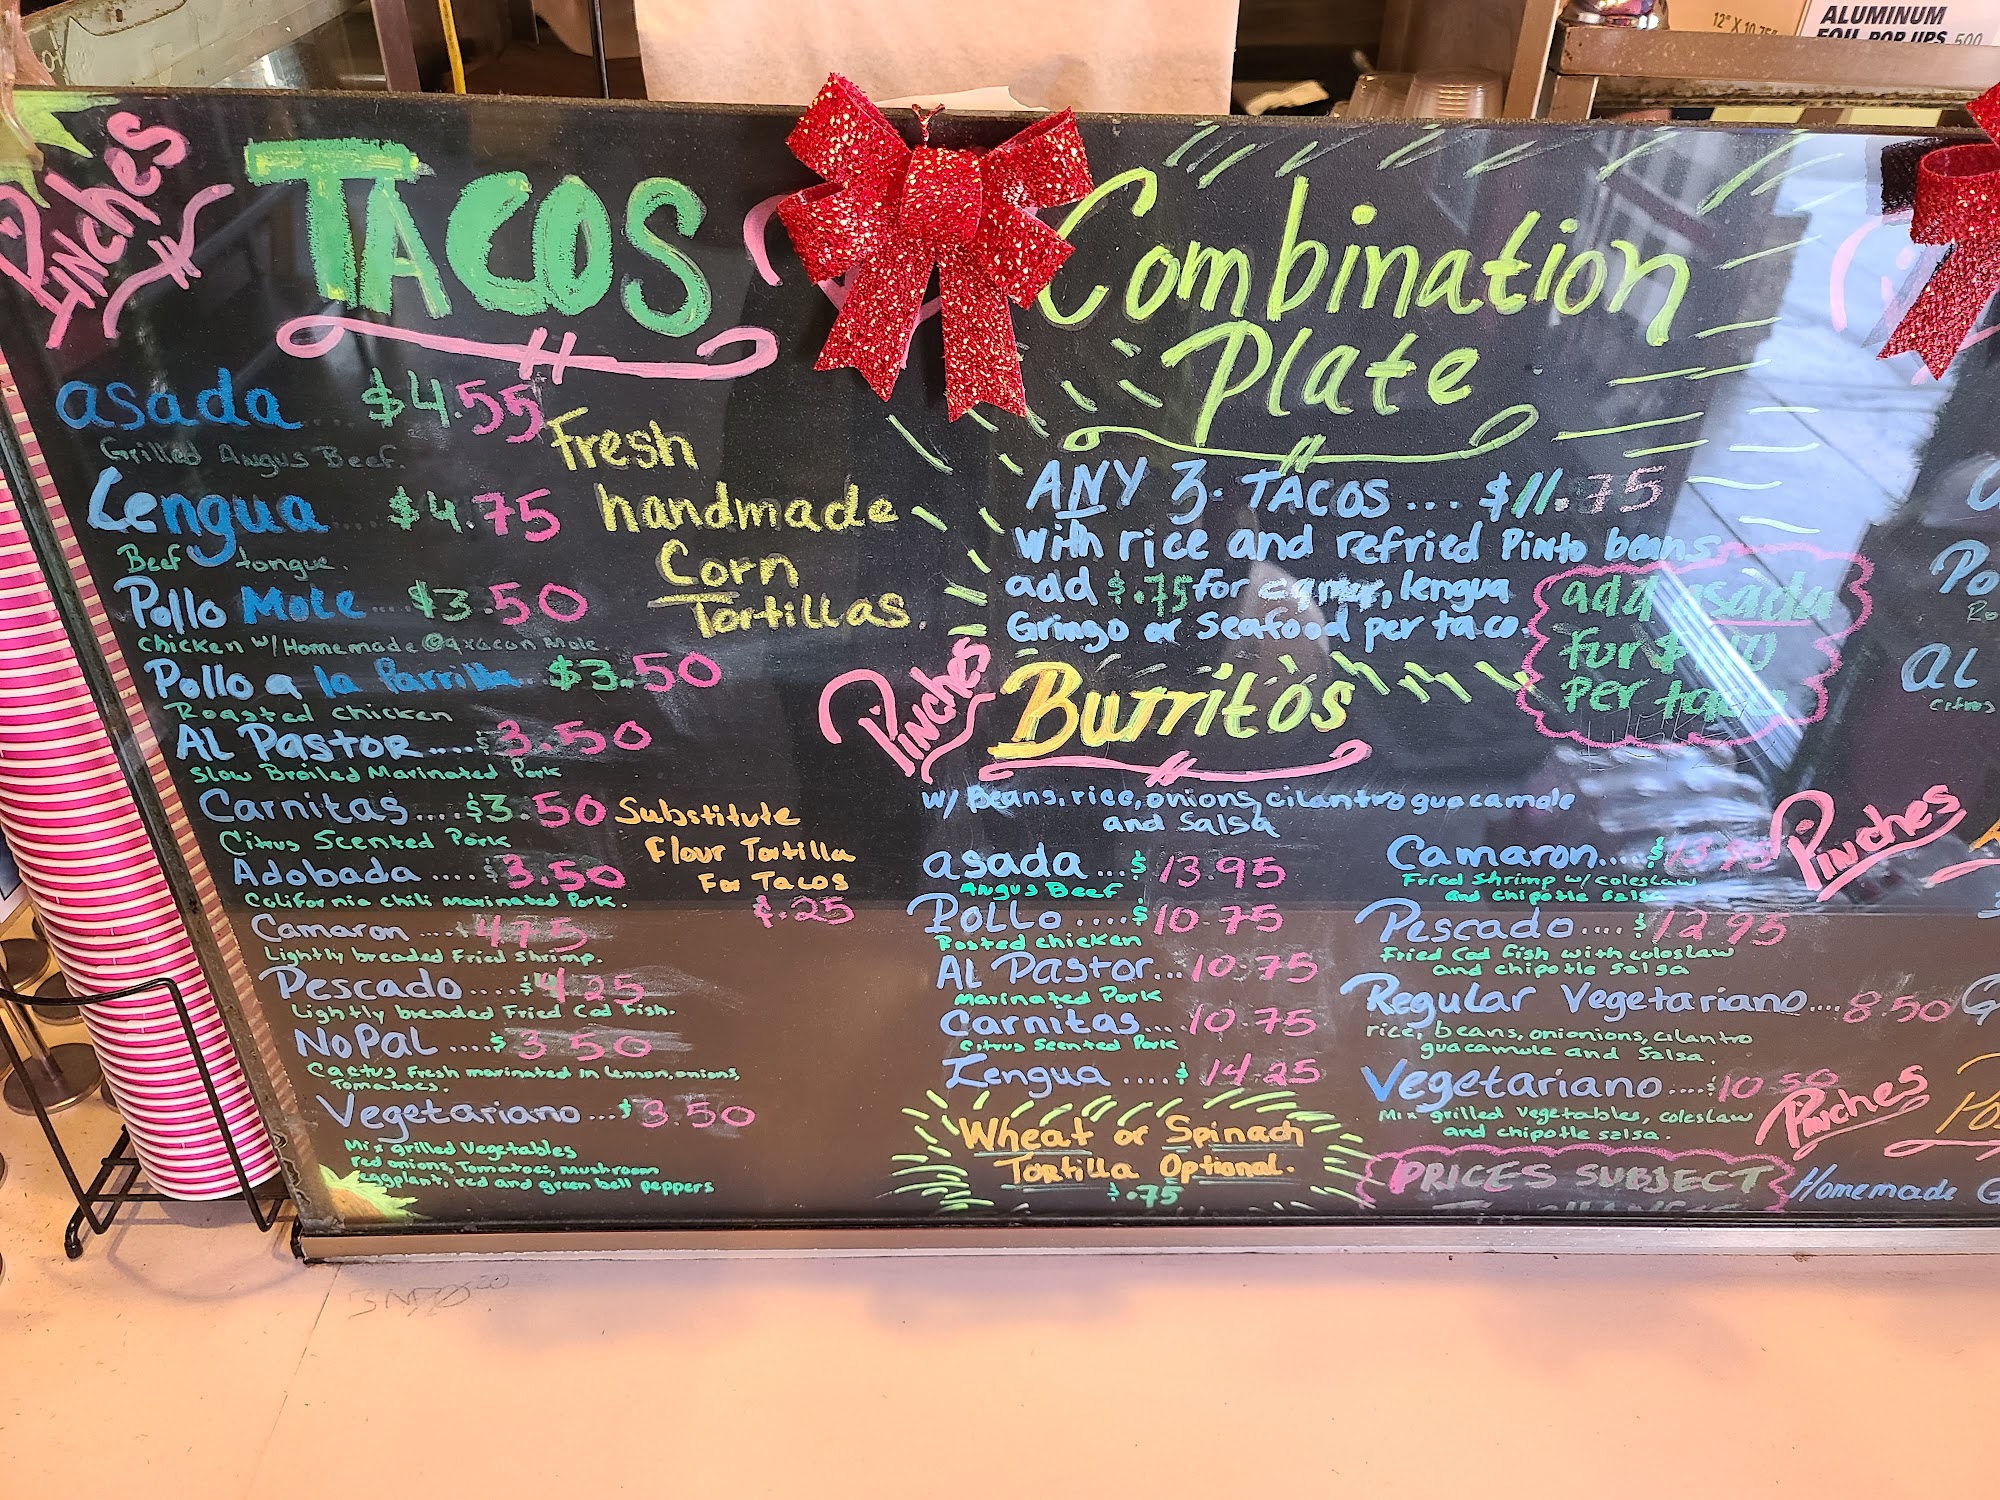 12" X 10.75"
ALUMINUM
FOIL POP UPS 500
Pinches
TACOS
asada ... $4.55
Grilled Angus Beef.
Lengua .... $4.75
Beef tongue.
Pollo Mole ... $3.50
chicken w/Homemade Oaxacan Mole.
Pollo a la Parrilla... $3.50
Roasted chicken
AL PASTOR.... $3.50
Slow Broiled Marinated Pork
Carnitas.... $3.50
Citrus Scented Pork
Adobada .... $3.50
California chili marinated Pork.
Camaron .... 4.75
Lightly breaded Fried Shrimp.
Pescado.... $4.25
Lightly breaded Fried Cod Fish.
NoPaL .... $3.50
Cactus Fresh marinated in Lemon, onions,
Tomatoes.
Vegetariano... $3.50
Mix grilled Vegetables
red onions, Tomatoes, mushroom
eggplant, red and green bell peppers
Fresh
handmade
Corn
Tortillas.
Substitute
Flour Tortilla
For Tacos
$.25
Combination
Plate
ANY 3. TACOS... $11.75
With rice and refried Pinto beans
add $.75 for lengua
Gringo or Seafood per taco.
add asada
per taco
Pinches
Burritos
w/ Beans, rice, onions, cilantro guacamole
and Salsa
asada ... $13.95
Angus Beef
POLLO .... $10.75
Rosted chicken
AL Pastor... 10.75
Marinated Pork
Carnitas... 10.75
Citrus Scented Pork
Lengua .... $14.25
Wheat or Spinach
Tortilla Optional.
$.75
Camaron.... $
Fried Shrimp w/ coleslaw
and chipotle salsa
Pescado.... $12.95
Fried Cod Fish with coleslaw
and chipotle salsa
Regular Vegetariano.... 8.50
rice, beans, onionions, cilantro
guacamole and Salsa.
Vegetariano.... $10.50
Mix grilled Vegetables, coleslaw
and chipotle salsa.
PRICES SUBJECT
Pinches
Pinches
Homemade